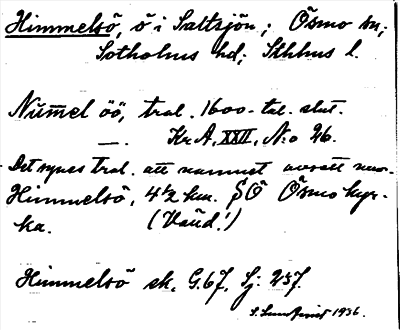 Himmelsö, ö i Saltsjön; Ösmo sn;
Sotholms hd; Sthlms l.
Nümel öö, trol. 1600-tal. slut.
—. Kr A, XXII, N:o 26.
Det synes trol. att namnet avsett nuv.
Himmelsö, 4½ km. SÖ Ösmo kyr-
ka. (Vaud!)
Himmelsö sk. G.67, Sj: 257.
1936.